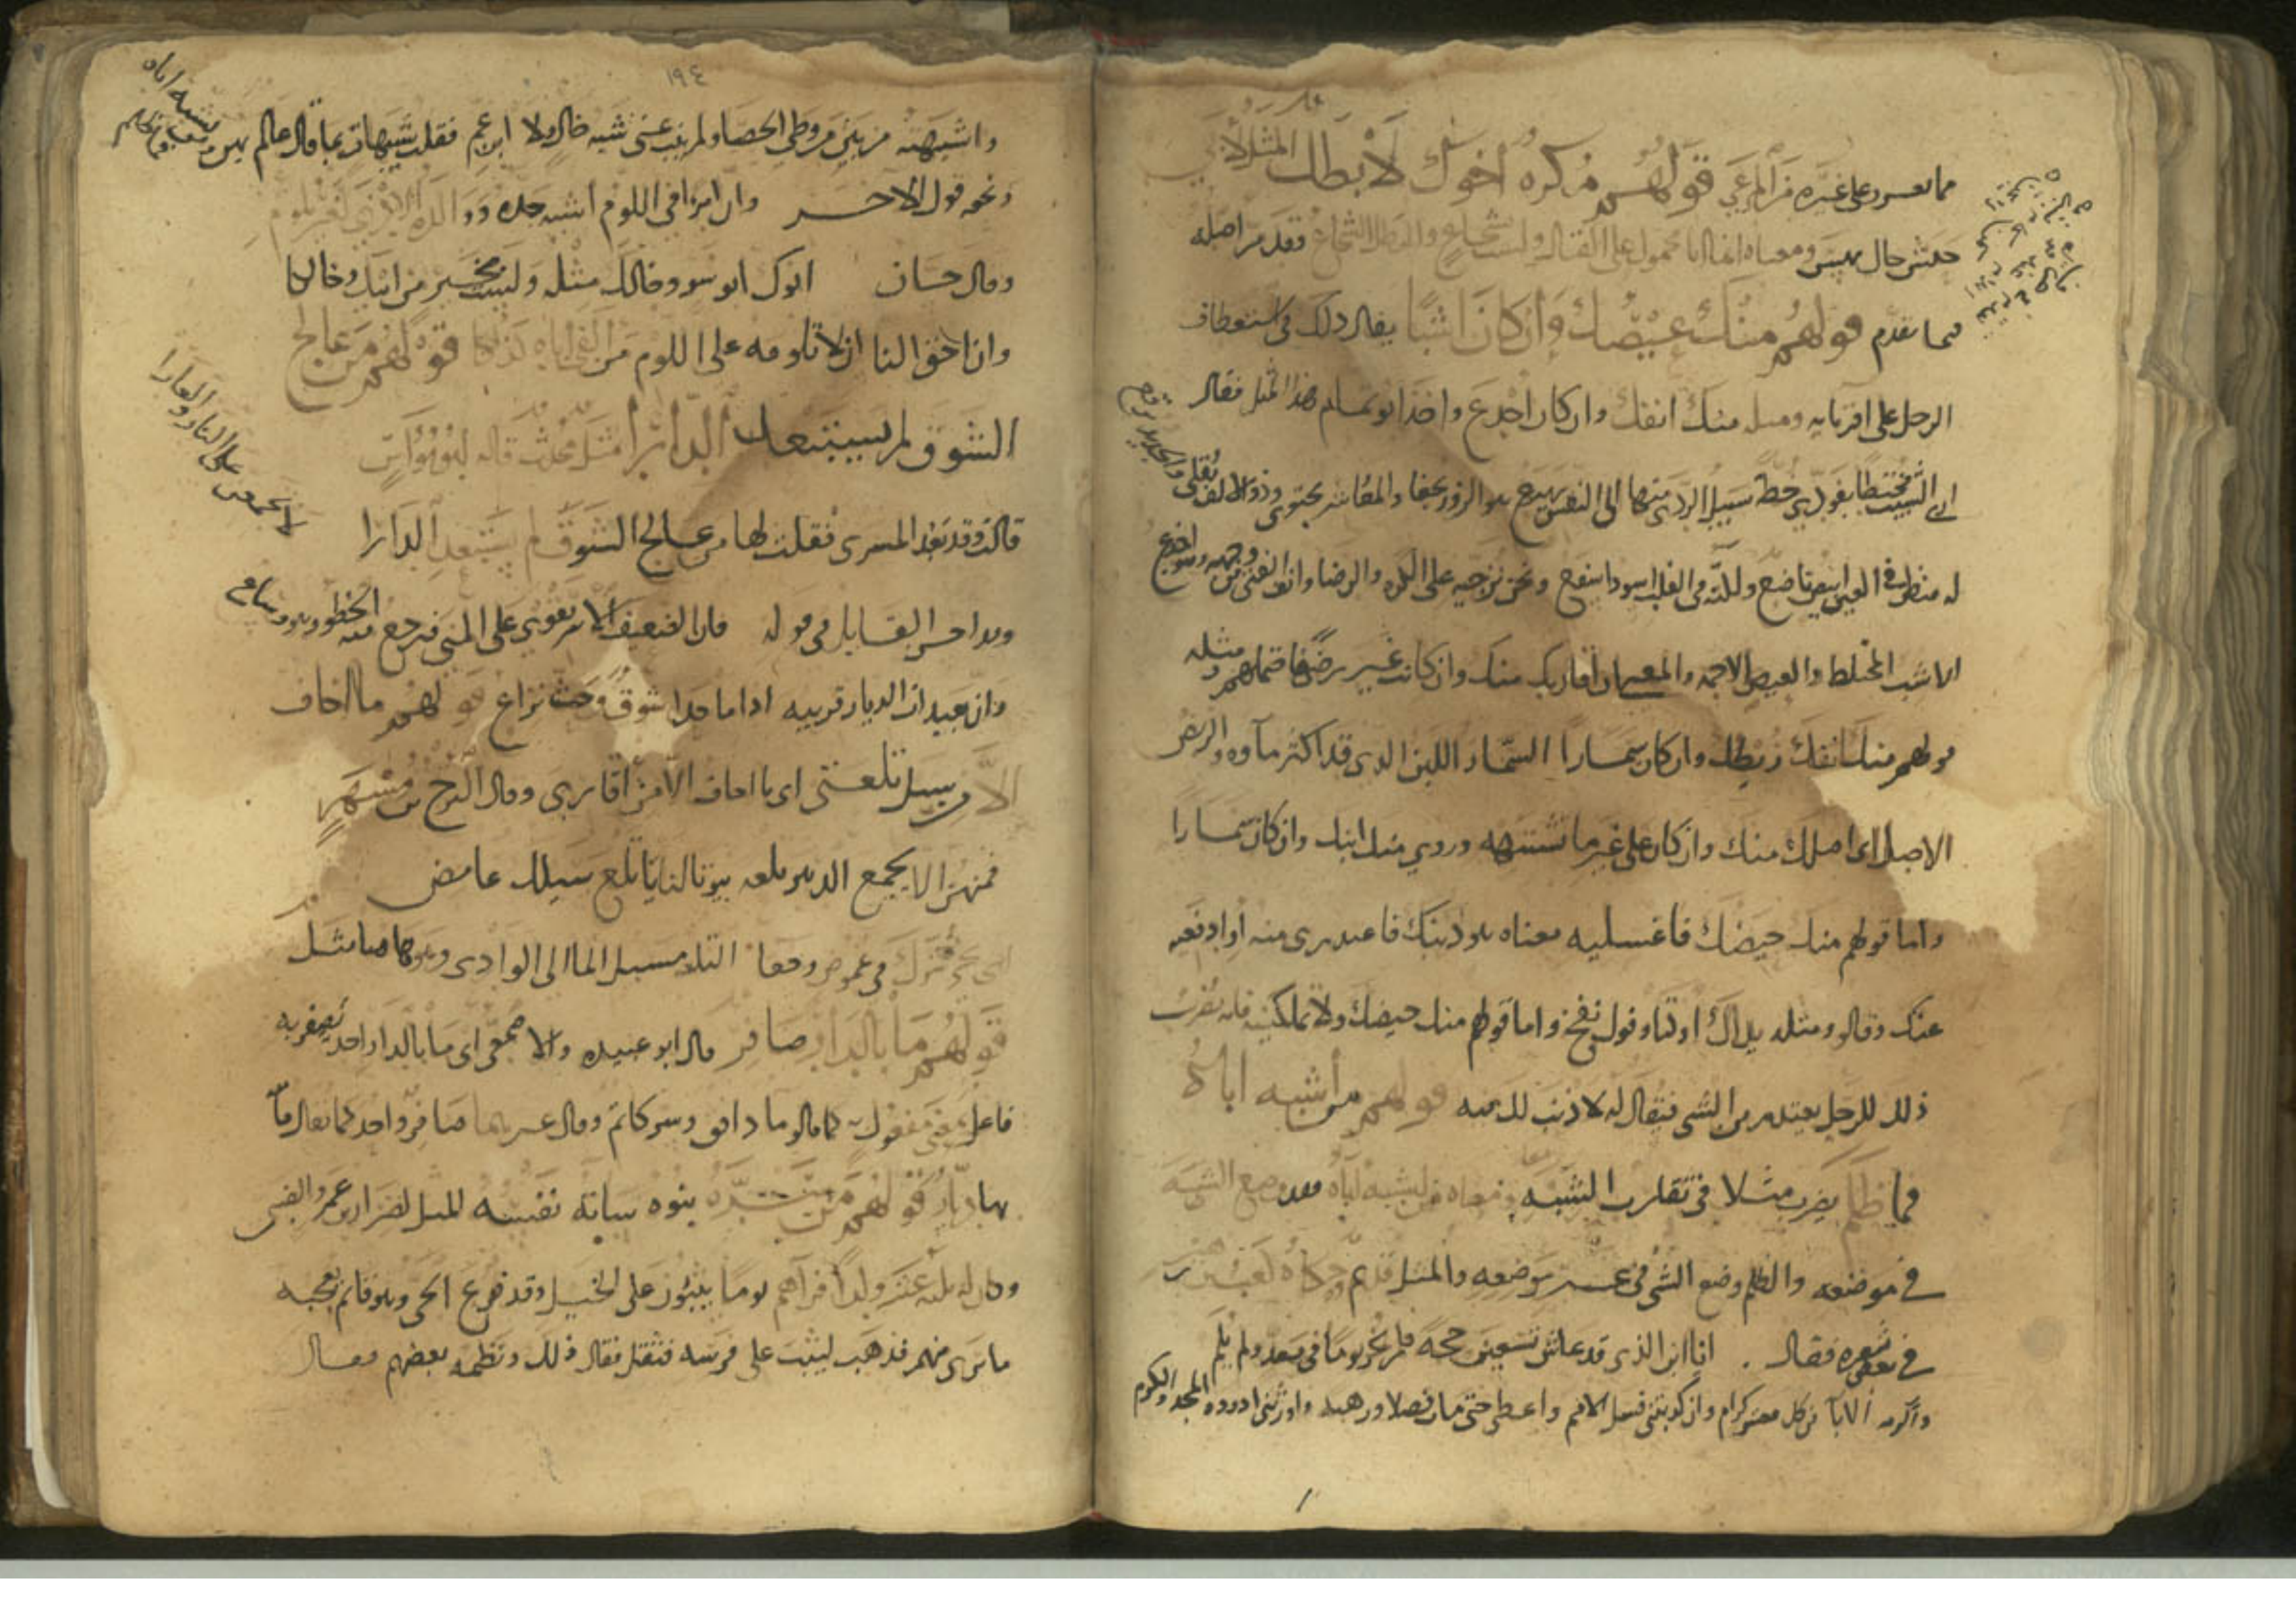 مما نفسد على غيره من المرعى قولهم مكره اخوك لا بطل المثل لأبي
حنش خال بيهس ومعناه انما انا محمول على القتال ولست بشجاع والبطل الشجاع وقد مر اصله
فيما تقدم قولهم منك عيصك وان كان اشبا يقال ذلك في استعطاف
الرجل على اقربايه ومثله منك انفك وان كان اجدع واخذ ابو تمام هذا المثل فقال
ارى الشيب مختطا بفودي خطة سبيل الردى منها الى النفس مهيع هو الزور يجفا والمعاشر يجتوى وذو الالف يقلى والجديد يرقع
له منظر في العين ابيض ناصع ولكنه في القلب اسود اسفع ونحن نزجيه على الكره والرضا وانف الفتى من وجهه وهو اجدع
الاشب المختلط والعيص الاجمة والمعنى ان اقاربك منك وان كانت غير رضى فاحتملهم ومثله
قولهم منك ربضك وان كان سمارا السمار اللبن الذي قد اكثر ماؤه والربض
الاصل اى اصلك منك وان كان على غير ما تشتهيه وروي منك انفك وان كان سمارا
واما قولهم منك حيضك فاغسليه معناه هو ذنبك فاعتذري منه او ادفعيه
عنك وقالوا ومثله يداك اوكتا وفوك نفخ واما قولهم منك حيضك ولا تملكينه فانه يضرب
ذلك للرجل يعتذر من الشي فيقال له لا ذنب لك فيه قولهم من أشبه اباه
فما ظلم يضرب مثلا في تقارب الشبه ومعناه من يشبه اباه فقد وضع الشبه
في موضعه والظلم وضع الشي في غير موضعه والمثل قديم وحكاه كعب بن زهير
في بعض شعره فقال انا ابن الذي قد عاش تسعين حجة فلم يخز يوما في معد ولم يلم
واكرمه الاباء في كل معشر كرام وان كذبتني فسل الامم واعطى حتى مات فضلا ورهبة واورثني اذ ودع المجد والكرم
١٩٤
واشبهته من بين من وطئ الحصا ولم ينتزعني شبه خال ولا ابن عم فقلت شبيهات بما قال عالم بهن ومن يشبه اباه فما ظلم
ونحوه قول الاخر وان امرءا في اللوم اشبه جده ووالده الادنى لغير ملوم
وقال حسان ابوك ابو سوء وخالك مثله ولست بخير من ابيك وخالكا
وان احق الناس ان لا تلومه على اللوم من الفى اباه كذلكا قولهم من عالج
الشوق لم يستبعد الدارا مثل محدث قاله ابو نواس
قالت وقد بعد المسرى فقلت لها من عالج الشوق لم يستبعد الدارا
لا يجمعن على النار والعارا
وهو احسن القايل في قوله
وان بعيدات الديار قريبة اذا ما حدا شوق وحث نزاع قولهم ما اخاف
الا من سيل تلعتى اى ما اخاف الا من أقاربي وقال البرج بن مسهر
فمنهن الا يجمع الدهر تلعة بيوتا لنا يا تلع سيلك غامض
التلعة مسيل الما الى الوادي
قولهم ما بالدار صافر قال ابو عبيده والاصمعى اى ما بالدار احد يصفر به
فاعل بمعنى مفعول به كما قالوا ما دافق وسر كاتم وقال غيرهما صافر واحد كما يقال ما
بها ديار قولهم من سره بنوه سائته نفسه المثل لضرار بن عمرو الضبي
وكان له ثلثة عشر ولدا فرآهم يوما يثبون على الخيل وقد فزع الحي وهو قائم يعجبه
ما يرى منهم فذهب ليثب على فرسه فثقل فقال ذلك ونظمه بعضهم فقال